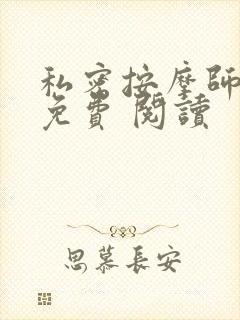 私密按摩師
免費 閱讀
思慕長安